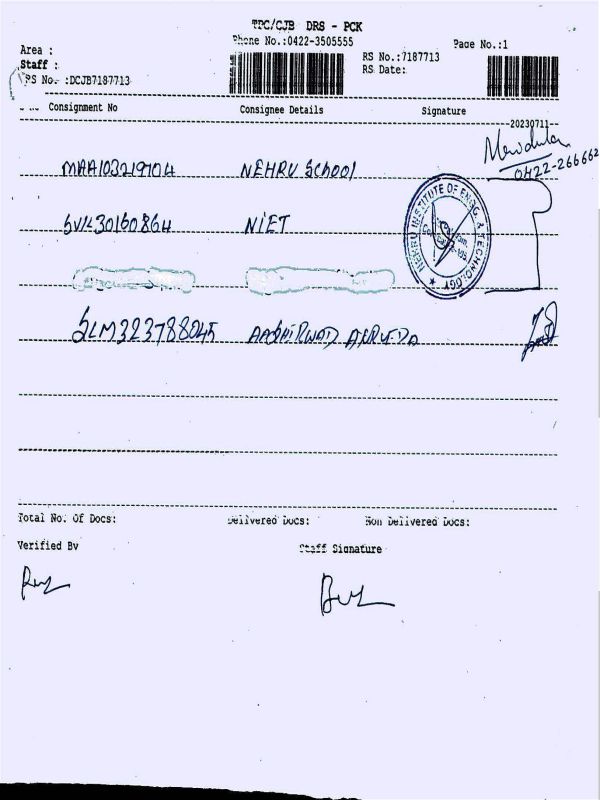 TPC/CJB DRS - PCK
Phone No.:0422-3505555
Page No.:1
Area :
Staff :
RS No.:7187713
RS Date:
PS No. :DCJB7187713
Consignment No Consignee Details Signature
20230711
0422-266662
MAA103219704 NEHRU School
SVK30160864 NIET
NEHRU INSTITUTE OF ENGG. & TECHNOLOGY
SLM323788045 AASHIRWAD AYURVEDA
Total No. Of Docs: Delivered Docs: Non Delivered Docs:
Verified By Staff Signature